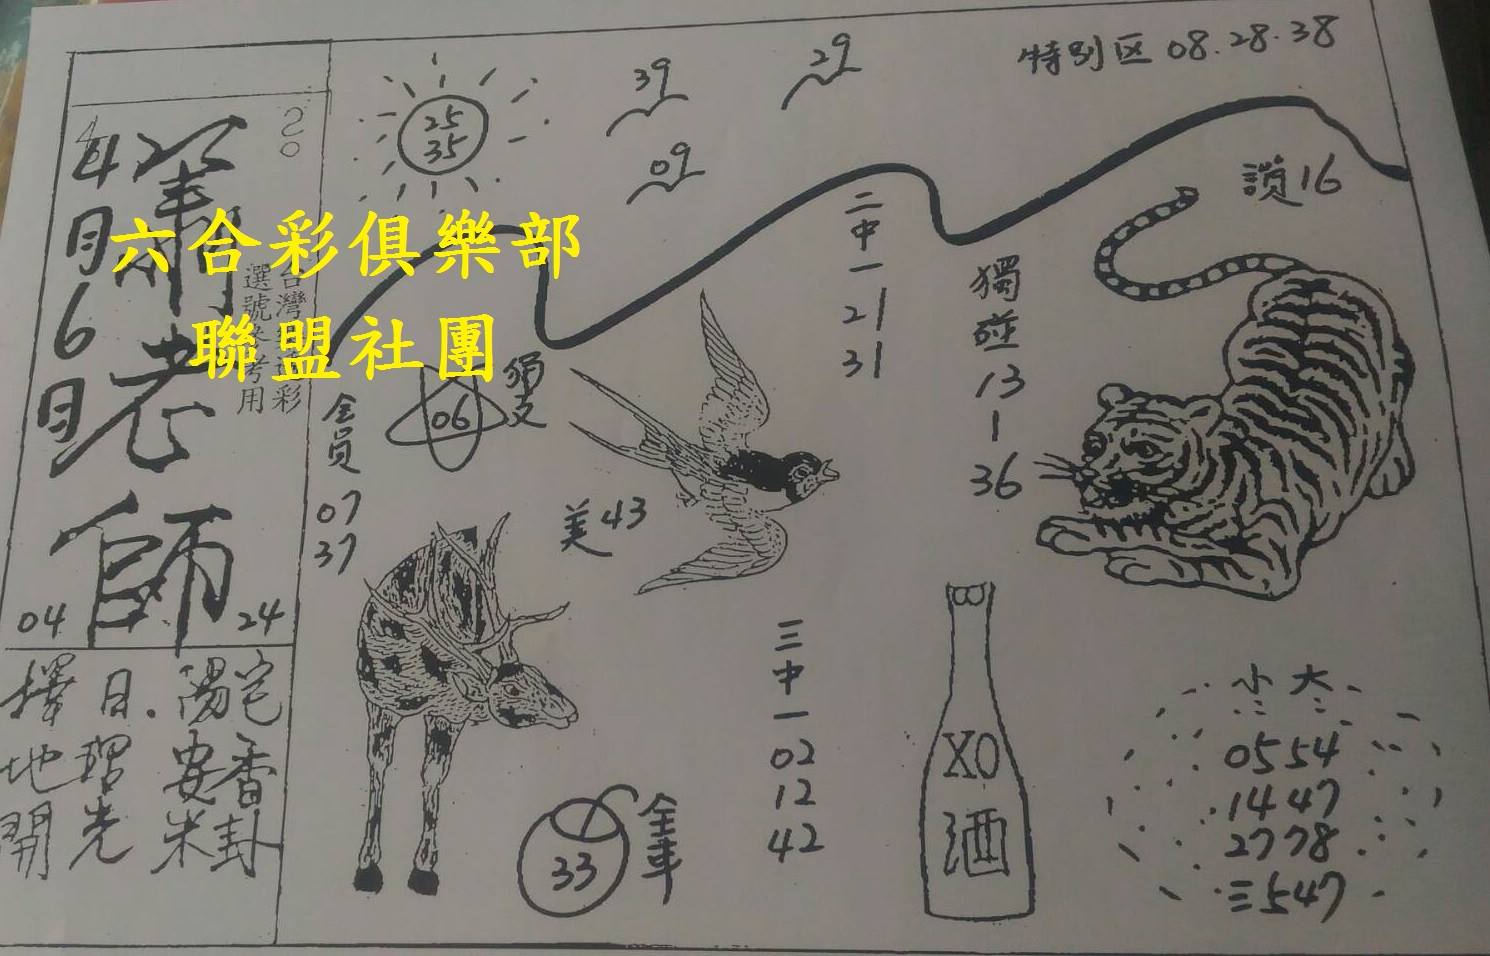 20
4月6日
蕭老師
台灣
選號參考用
六合彩俱樂部
聯盟社團
04
24
擇日.陽宅
地理 安香
開光 米卦
25
35
39
29
09
特別区 08.28.38
讚16
二中一
21
31
獨碰
13
|
36
06
獨支
全員
07
37
美43
三中一
02
12
42
33
全車
XO
酒
小 大
0554
1447
2778
三547